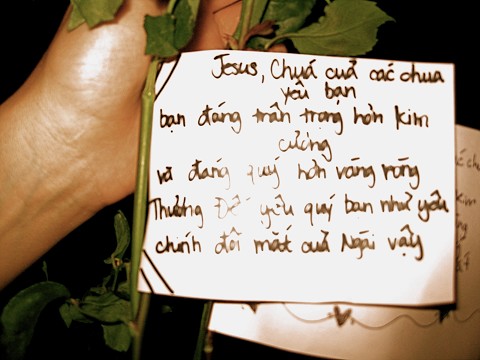 Jesus, Chuá cuả các chua
yêu bạn
bạn đáng trân trọng hơn kim
cương
và đáng quý hơn vàng ròng
Thượng Đế yêu quý bạn như yêu
chính đôi mắt cuả Ngài vậy